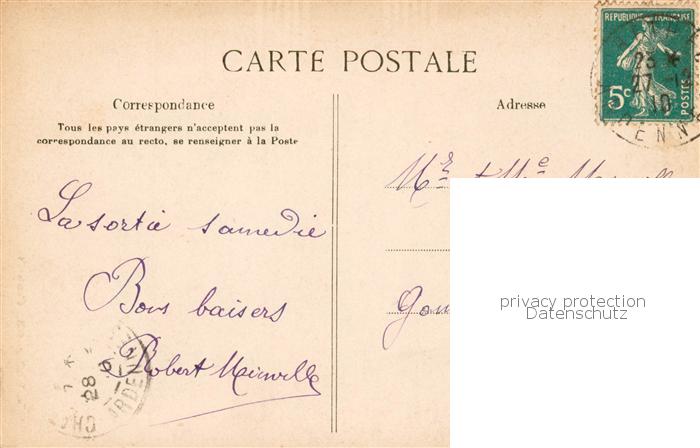 CARTE POSTALE
Correspondance
Tous les pays étrangers n'acceptent pas la
correspondance au recto, se renseigner à la Poste
La sortie samedie
Bons baisers
Robert
Adresse
REPUBLIQUE FRANÇAISE
5c
POSTES
23
27
10
ENN
Mr et Mme
privacy protection
Datenschutz
28
ARDENN